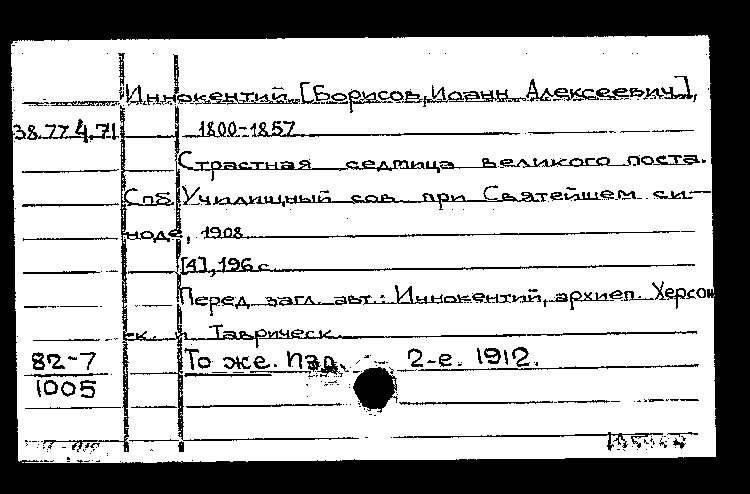 Иннокентий [Борисов, Иоанн Алексеевич],
38.77.4.71 1800-1857
Страстная седмица великого поста.
Спб Училищный сов. при Святейшем си-
ноде, 1908
[4], 196 с.
Перед загл. авт.: Иннокентий, архиеп. Херсон
ск. и Таврическ.
82-7 То же. Изд. 2-е. 1912.
1005